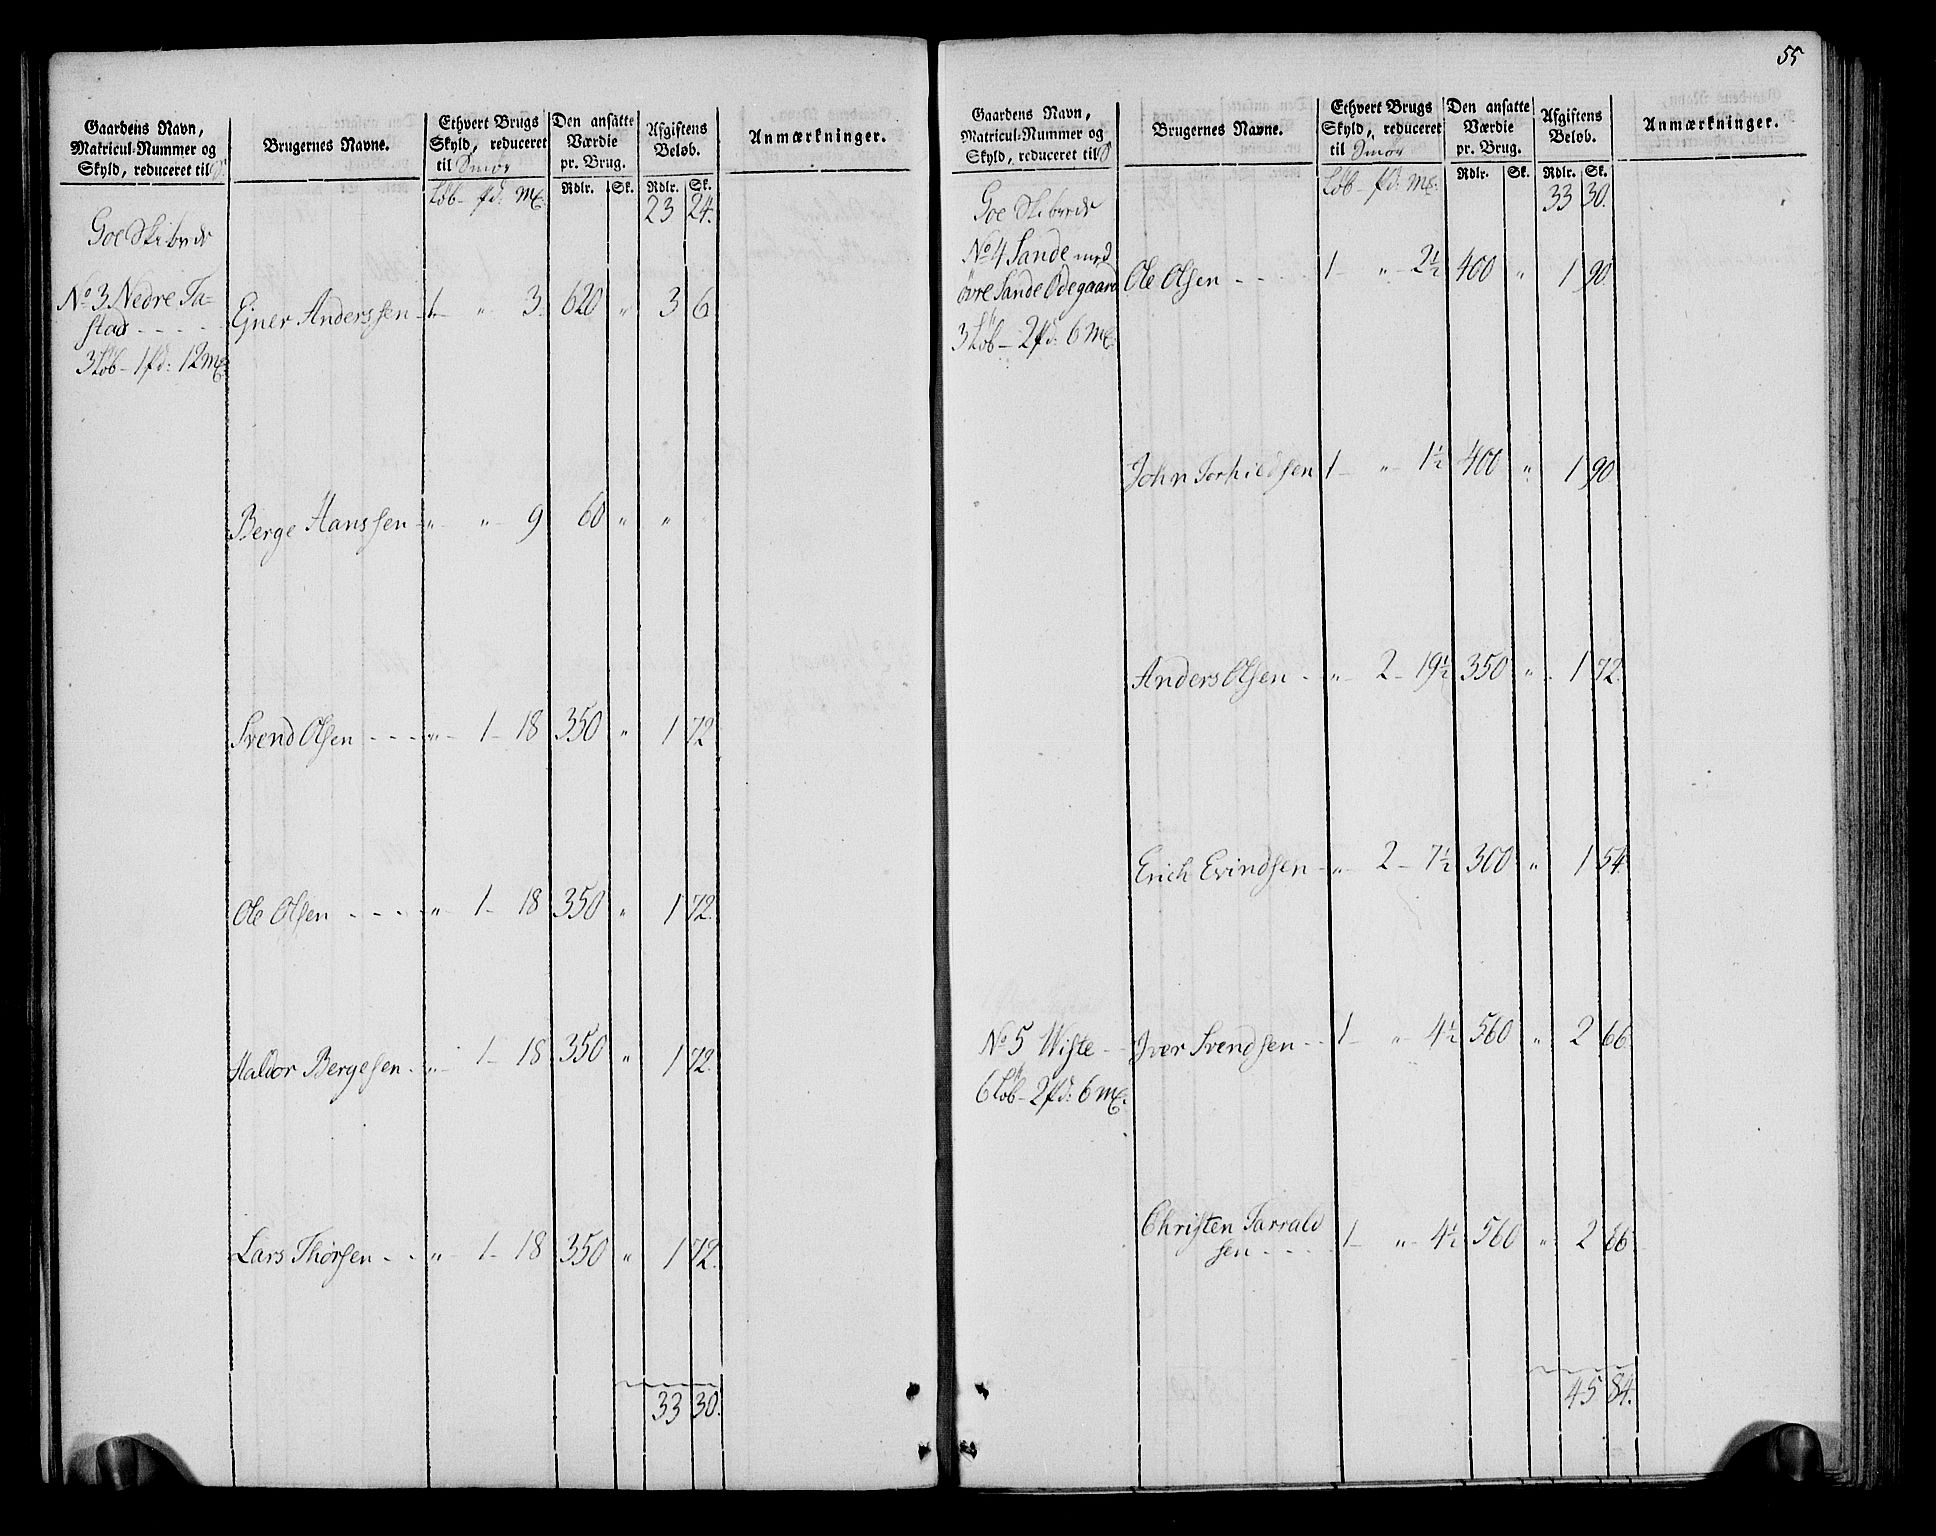 Gaardens Navn,
Matricul-Nummer og
Skyld, reduceret til S.
Brugernes Navne.
Ethvert Brugs
Skyld, reduceret
til Smør
Den ansatte
Værdie
pr. Brug.
Afgiftens
Beløb.
Anmærkninger.
Løb - pd: mk:
Rdlr. Sk. Rdlr. Sk.
23 24.
Goe Skibrede
No 3 Nedre Ta-
stad - - - -
3 Løb - 1 pd: 12 mk:
Ejner Anderssen - 1 - " 3. 620 " 3 6.
Berge Hanssen - " " 9 60 " "
Svend Olsen - - - " - 1 - 18 350 " 1 72
Ole Olsen - - - - " - 1 - 18 350 " 1 72.
Haldor Bergesen - " 1 - 18 350 " 1 72.
Lars Thorsen - - " - 1 - 18 350 " 1 72.
33 30.
55
Gaardens Navn,
Matricul-Nummer og
Skyld, reduceret til S
Brugernes Navne.
Ethvert Brugs
Skyld, reduceret
til Smør
Den ansatte
Værdie
pr. Brug.
Afgiftens
Beløb.
Anmærkninger.
Løb - pd: mk:
Rdlr. Sk. Rdlr. Sk.
33 30.
Goe Skibrede
No 4 Sande med
øvre Sande Ødegaard
3 Løb - 2 pd: 6 mk:
Ole Olsen - - - - 1 - " 2½ 400 " 1 90.
John Torkildsen 1 - " - 1½ 400 " 1 90
Anders Olsen - " - 2 - 19½ 350 " 1 72.
Erich Evindsen - " - 2 - 7½ 300 " 1 54.
No 5 Wiste -
6 Løb - 2 pd: 6 mk:
Iver Svendsen - - 1 - " 4½ 560 " 2 66.
Christen Tarrald
sen - - - 1 - " - 4½ 560 " 2 66
45 84.